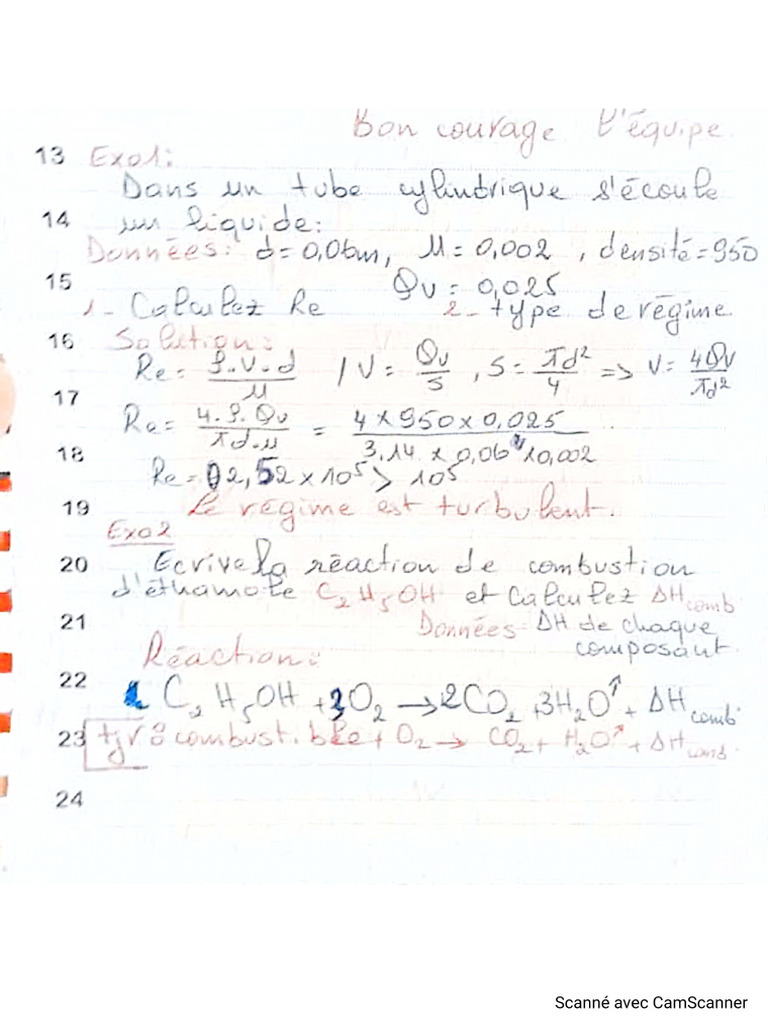 Bon courage l'équipe.
13 Exo1:
Dans un tube cylindrique s'écoule
14 un liquide:
Données: d=0,06m, M=0,002, densité=950
15 Qv=0,025
1- Calculez Re 2- type de régime.
16 Solution:
Re = ρ.V.d / M / V = Qv/S, S = πd²/4 => V = 4Qv/πd²
17 Re = 4.ρ.Qv / πd.M = 4×950×0,025 / 3,14×0,06×0,002
18 Re = 2,52×10⁵ > 10⁵
19 Le régime est turbulent.
Exo2
20 Ecrive la réaction de combustion
d'éthamole C₂H₅OH et Calculez ΔHcomb
21 Données ΔH de chaque
composant.
Réaction:
22 1 C₂H₅OH + 3O₂ → 2CO₂ + 3H₂O↑ + ΔHcomb
23 tjr: combustible + O₂ → CO₂ + H₂O↑ + ΔHcomb
24
Scanné avec CamScanner